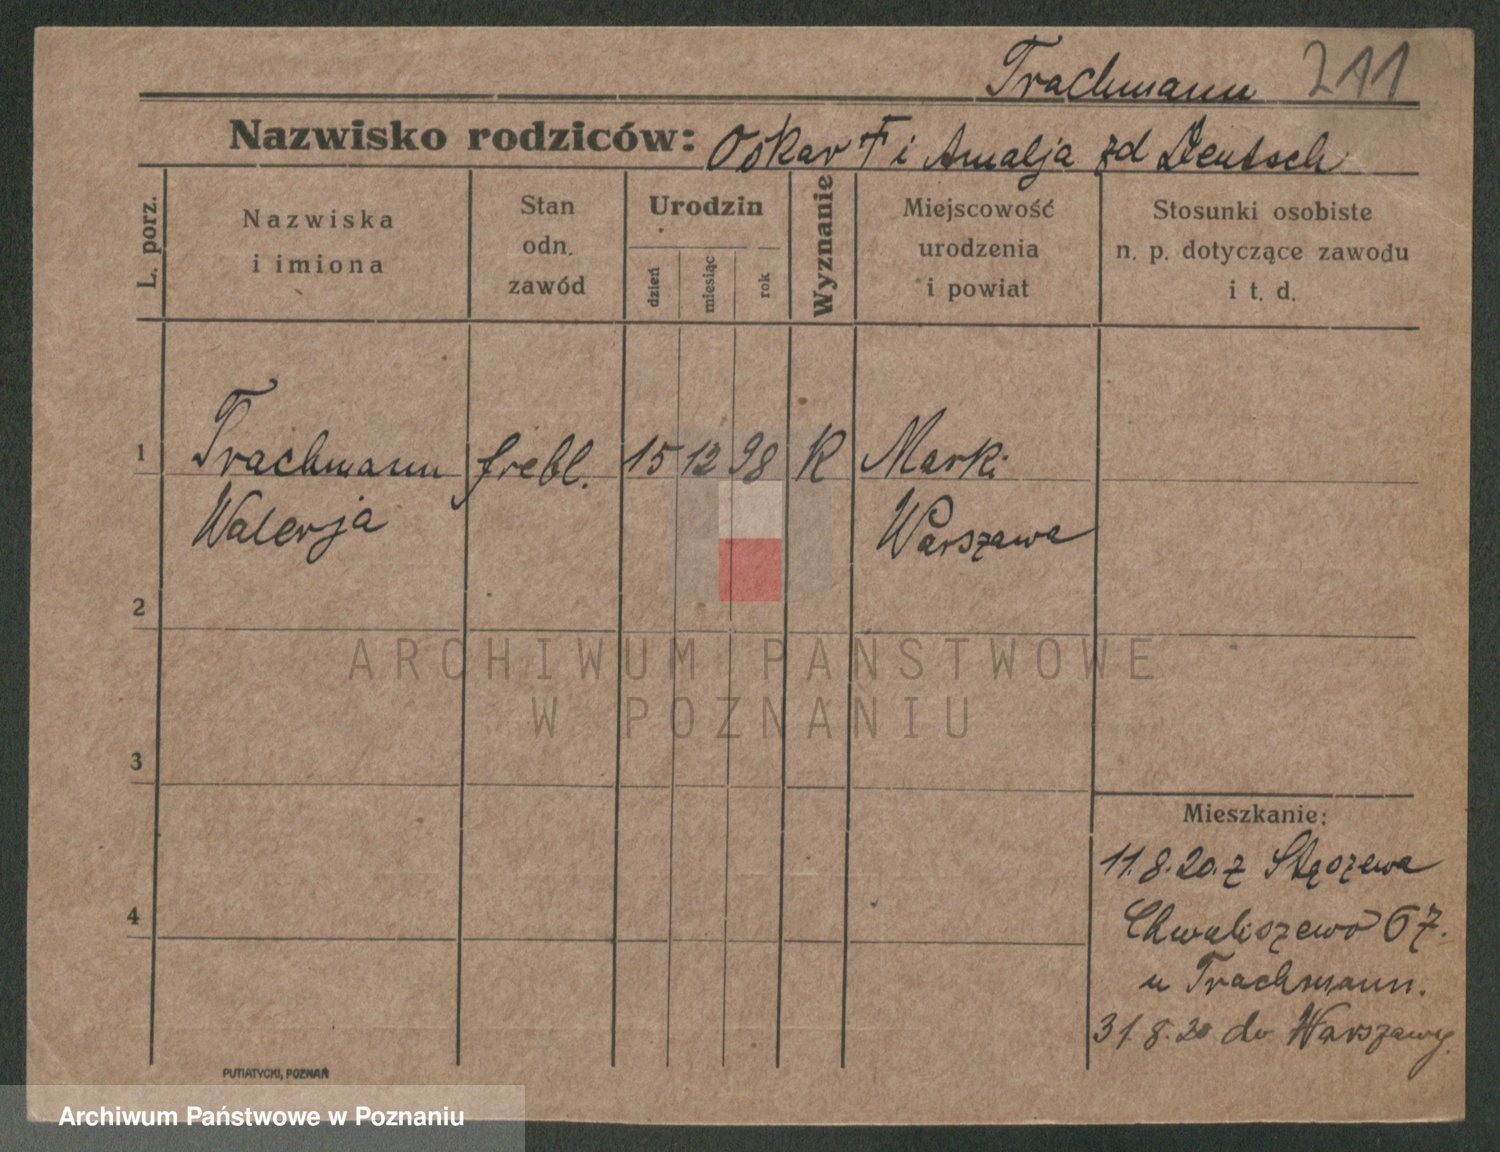 Trachmann 211
Nazwisko rodziców: Oskar F i Amalja zd Deutsch
L. porz.
Nazwiska
i imiona
Stan
odn.
zawód
Urodzin
dzień
miesiąc
rok
Wyznanie
Miejscowość
urodzenia
i powiat
Stosunki osobiste
n. p. dotyczące zawodu
i t. d.
1 Trachmann frebl. 15 12 98 K Marki
Walerja Warszawa
2
ARCHIWUM PAŃSTWOWE
W POZNANIU
3
Mieszkanie:
11.8.20. z Stęszewa
4
Chwaliszewo 67.
u Trachmann.
31.8.20 do Warszawy
PUTIATYCKI, POZNAŃ
Archiwum Państwowe w Poznaniu